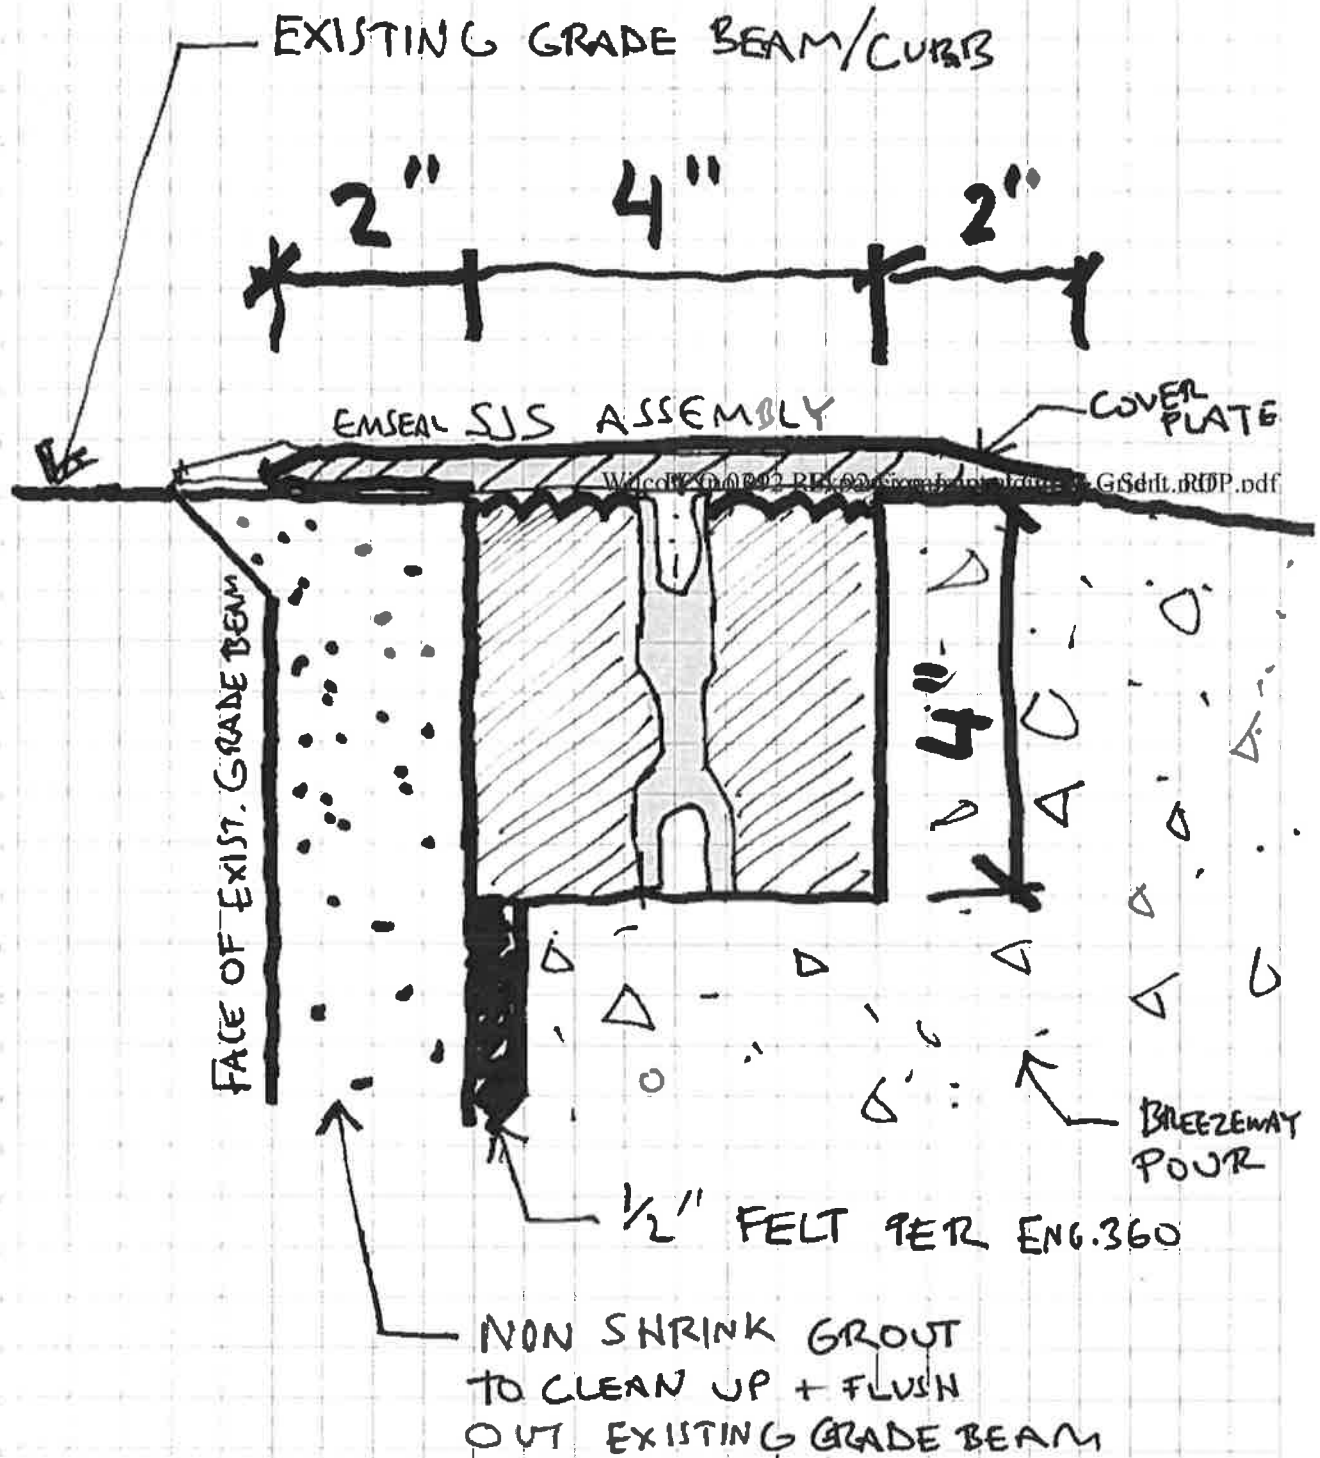 EXISTING GRADE BEAM/CURB
2" 4" 2"
EMSEAL SJS ASSEMBLY
COVER
PLATE
FACE OF EXIST. GRADE BEAM
4"
BREEZEWAY
POUR
1/2" FELT PER ENG.360
NON SHRINK GROUT
TO CLEAN UP + FLUSH
OUT EXISTING GRADE BEAM